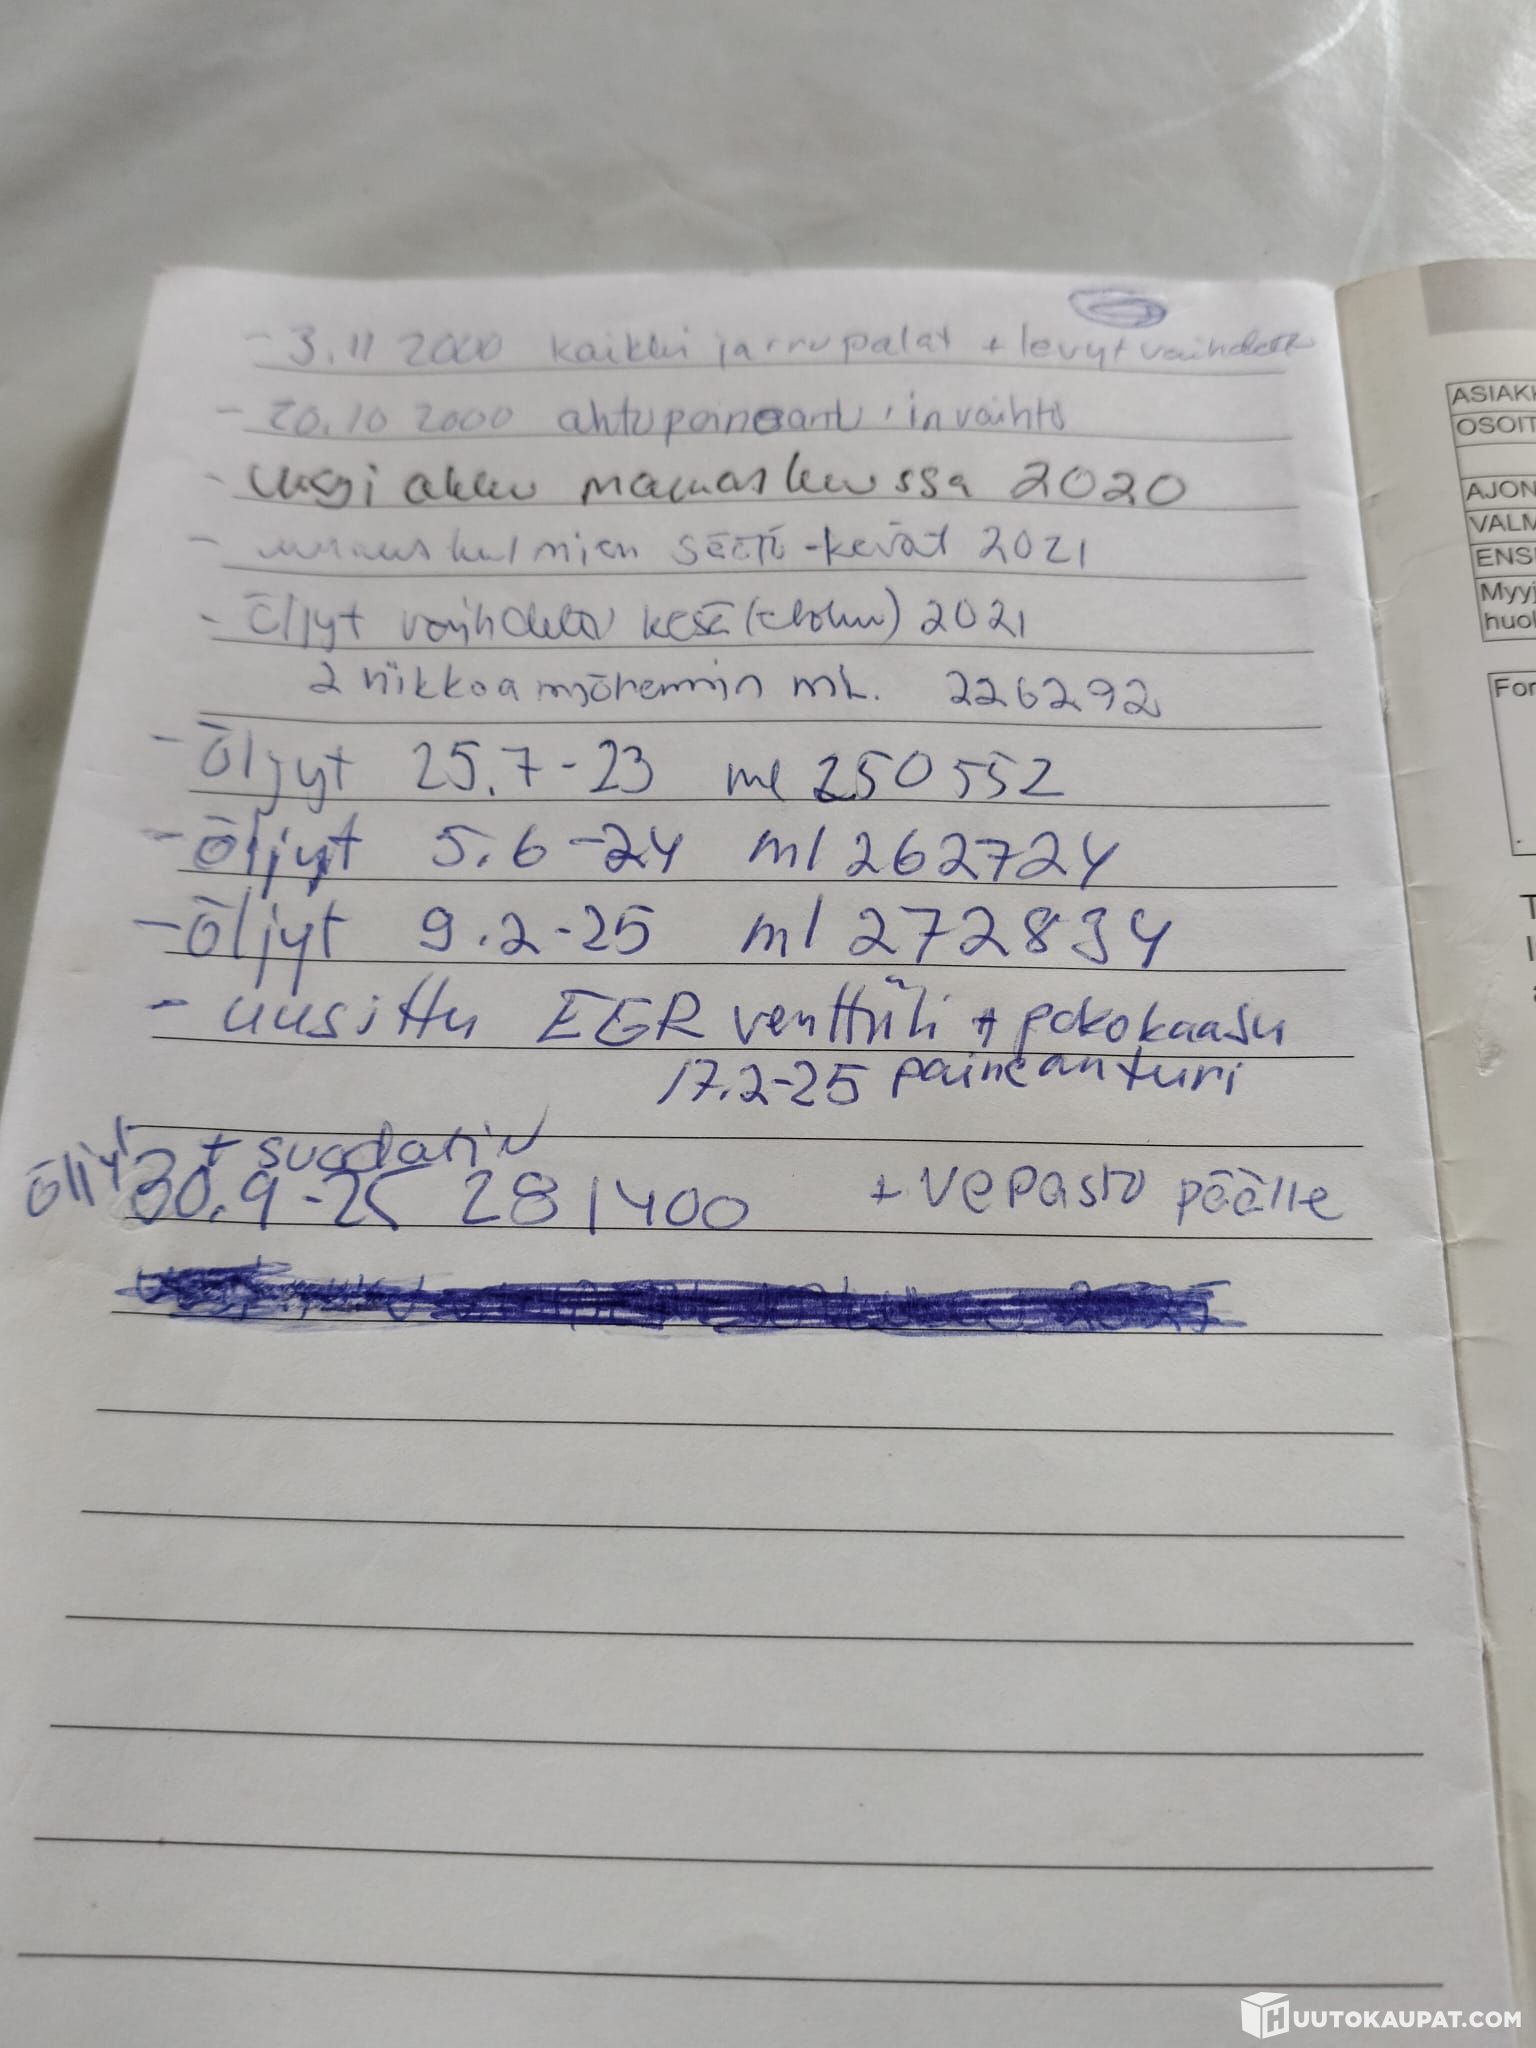 - 3.11 2000 kaikki jarrupalat + levyt vaihdettu
- 20.10 2000 ahtopaineant.in vaihto
- Uusi akku marraskuussa 2020
- kulmien säätö - kevät 2021
- Öljyt vaihdettu kesä (eloku) 2021
2 viikkoa myöhemmin mL. 226292
- Öljyt 25.7-23 ml 250552
- Öljyt 5.6-24 ml 262724
- Öljyt 9.2-25 ml 272834
- uusittu EGR venttiili + pakokaasu
17.2-25 paineanturi
+ suodatin
öljyt 30.9-25 281400 + vepasto päälle
ASIAK
OSOIT
AJON
VALM
ENSI
Myyj
huol
For
HUUTOKAUPAT.COM